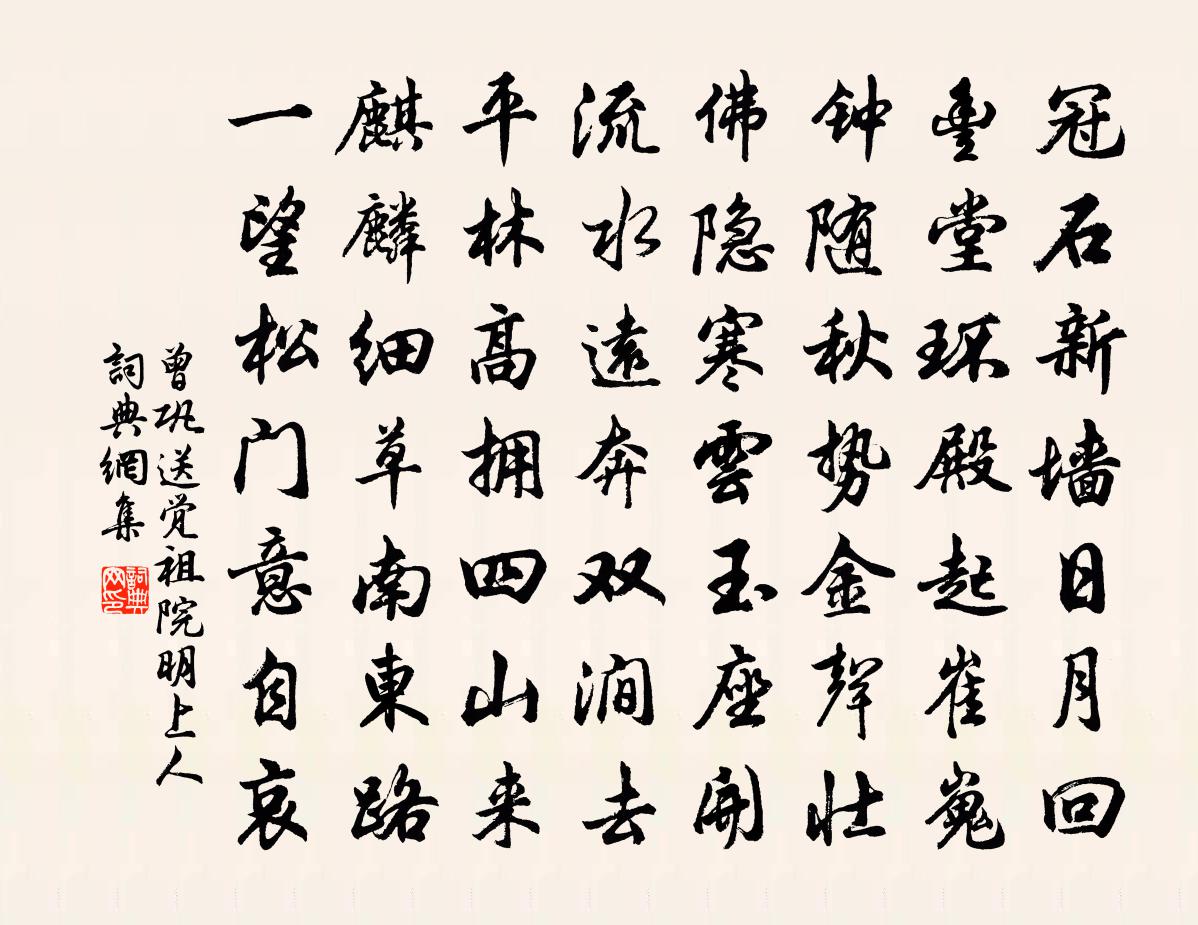 冠石新墙日月回
豊堂环殿起崔嵬
钟随秋势金聲壮
佛隐寒雲玉座開
流水遠奔双涧去
平林高拥四山来
麒麟细草南東路
一望松门意自哀
曾巩送觉祖院明上人
詞典網集
詞典网印